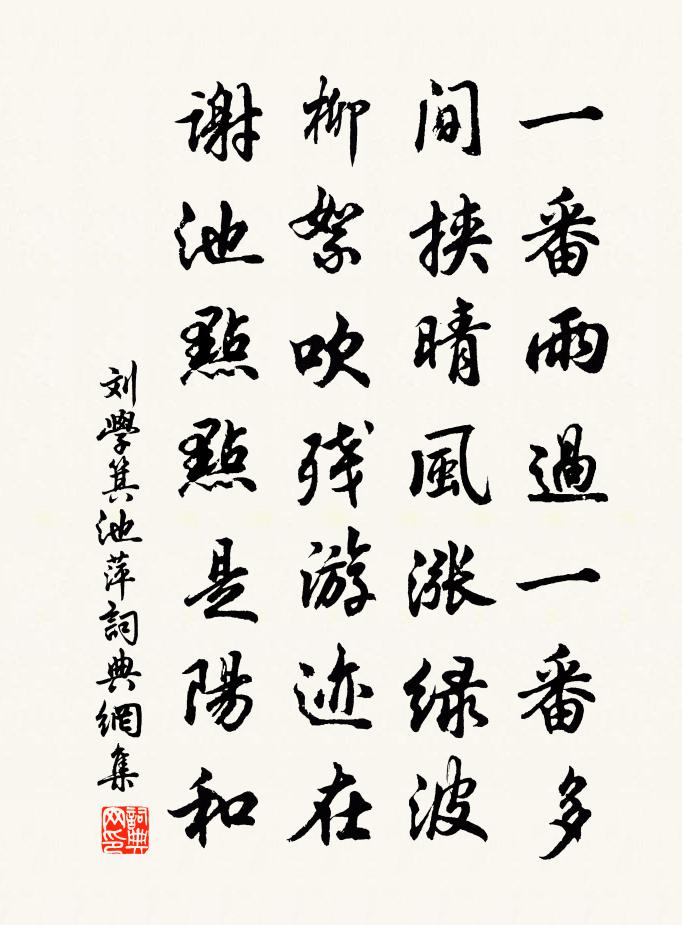 一番雨過一番多
間挾晴風漲緑波
柳絮吹残游迹在
謝池點點是陽和
刘學箕池萍詞典網集
詞典网印